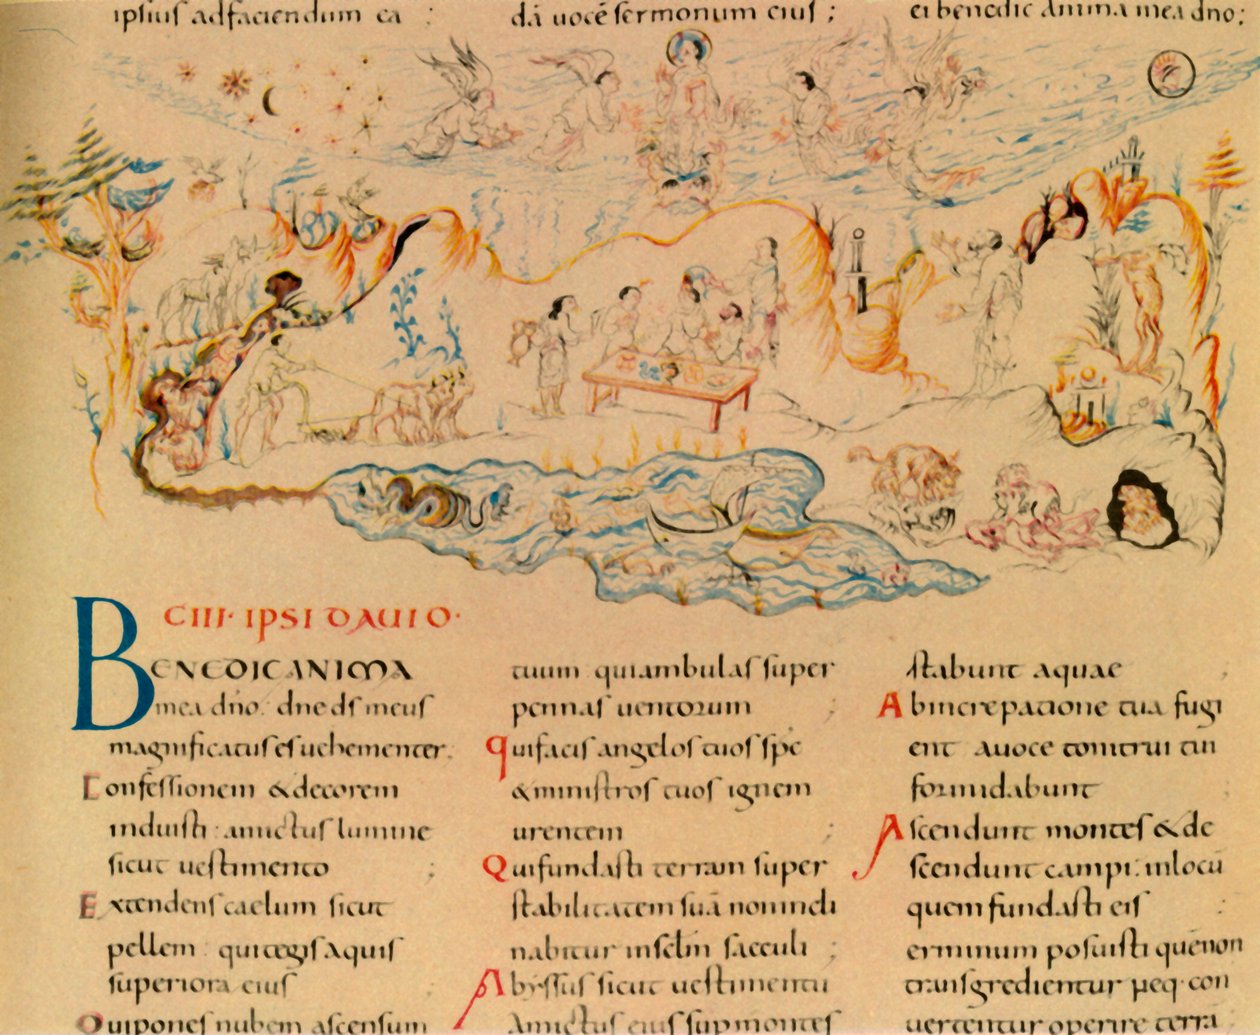 ipsius adfaciendum ea :
dā uocē sermonum eius ;
ei benedic anima mea dno;
CIII· IPSI DAUID·
BENEDICANIMA
mea dn̄o. dne ds meus
magnificatus es uehementer.
Confessionem &decorem
induisti· amictus lumine
sicut uestimento ;
Extendens caelum sicut
pellem· qui tegis aquis
superiora eius
Quipones nubem ascensum
tuum quiambulas super
pennas uentorum ;
Quifacis angelos tuos sp̄s
&ministros tuos ignem
urentem ;
Quifundasti terram super
stabilitatem suā noninclı
nabitur insclm saeculi ;
Abyssus sicut uestimentū
Amictus eius sup montes
stabunt aquae ;
Abincrepatione tua fugi
ent auoce tonitrui tui
formidabunt
Ascendunt montes &de
scendunt campi· inlocū
quem fundasti eis :
erminum posuisti quēnon
transgredientur neq· con
uertentur operire terrā